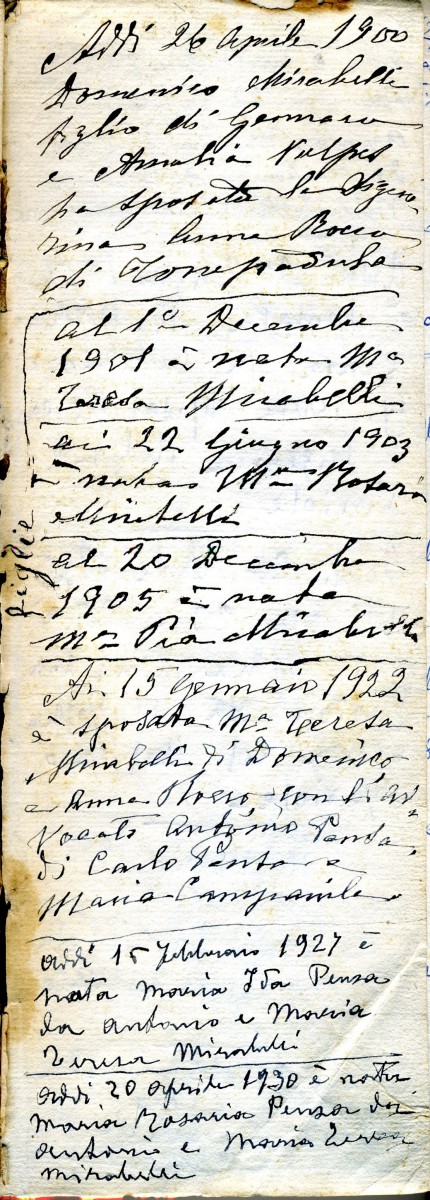 Addì 26 Aprile 1900
Domenico Mirabelli
figlio di Gennaro
e Amalia Vulpes
ha sposata la Signo-
rina Anna Rocco
di Torrepadula
al 1º Decembre
1901 è nata Mª
Teresa Mirabelli
ai 22 Giugno 1903
è nata Mª Rosaria
Mirabelli
figlie
al 20 Decembre
1905 è nata
Mª Pia Mirabelli
Ai 15 Gennaio 1922
è sposata Mª Teresa
Mirabelli di Domenico
e Anna Rocco, con l'av-
vocato Antonio
di Carlo e
Maria Campanile
addì 15 febbraio 1927 è
nata Maria Ida Pensa
da Antonio e Maria
Teresa Mirabelli
addì 20 aprile 1930 è nata
Maria Rosaria Pensa da
Antonio e Maria Teresa
Mirabelli